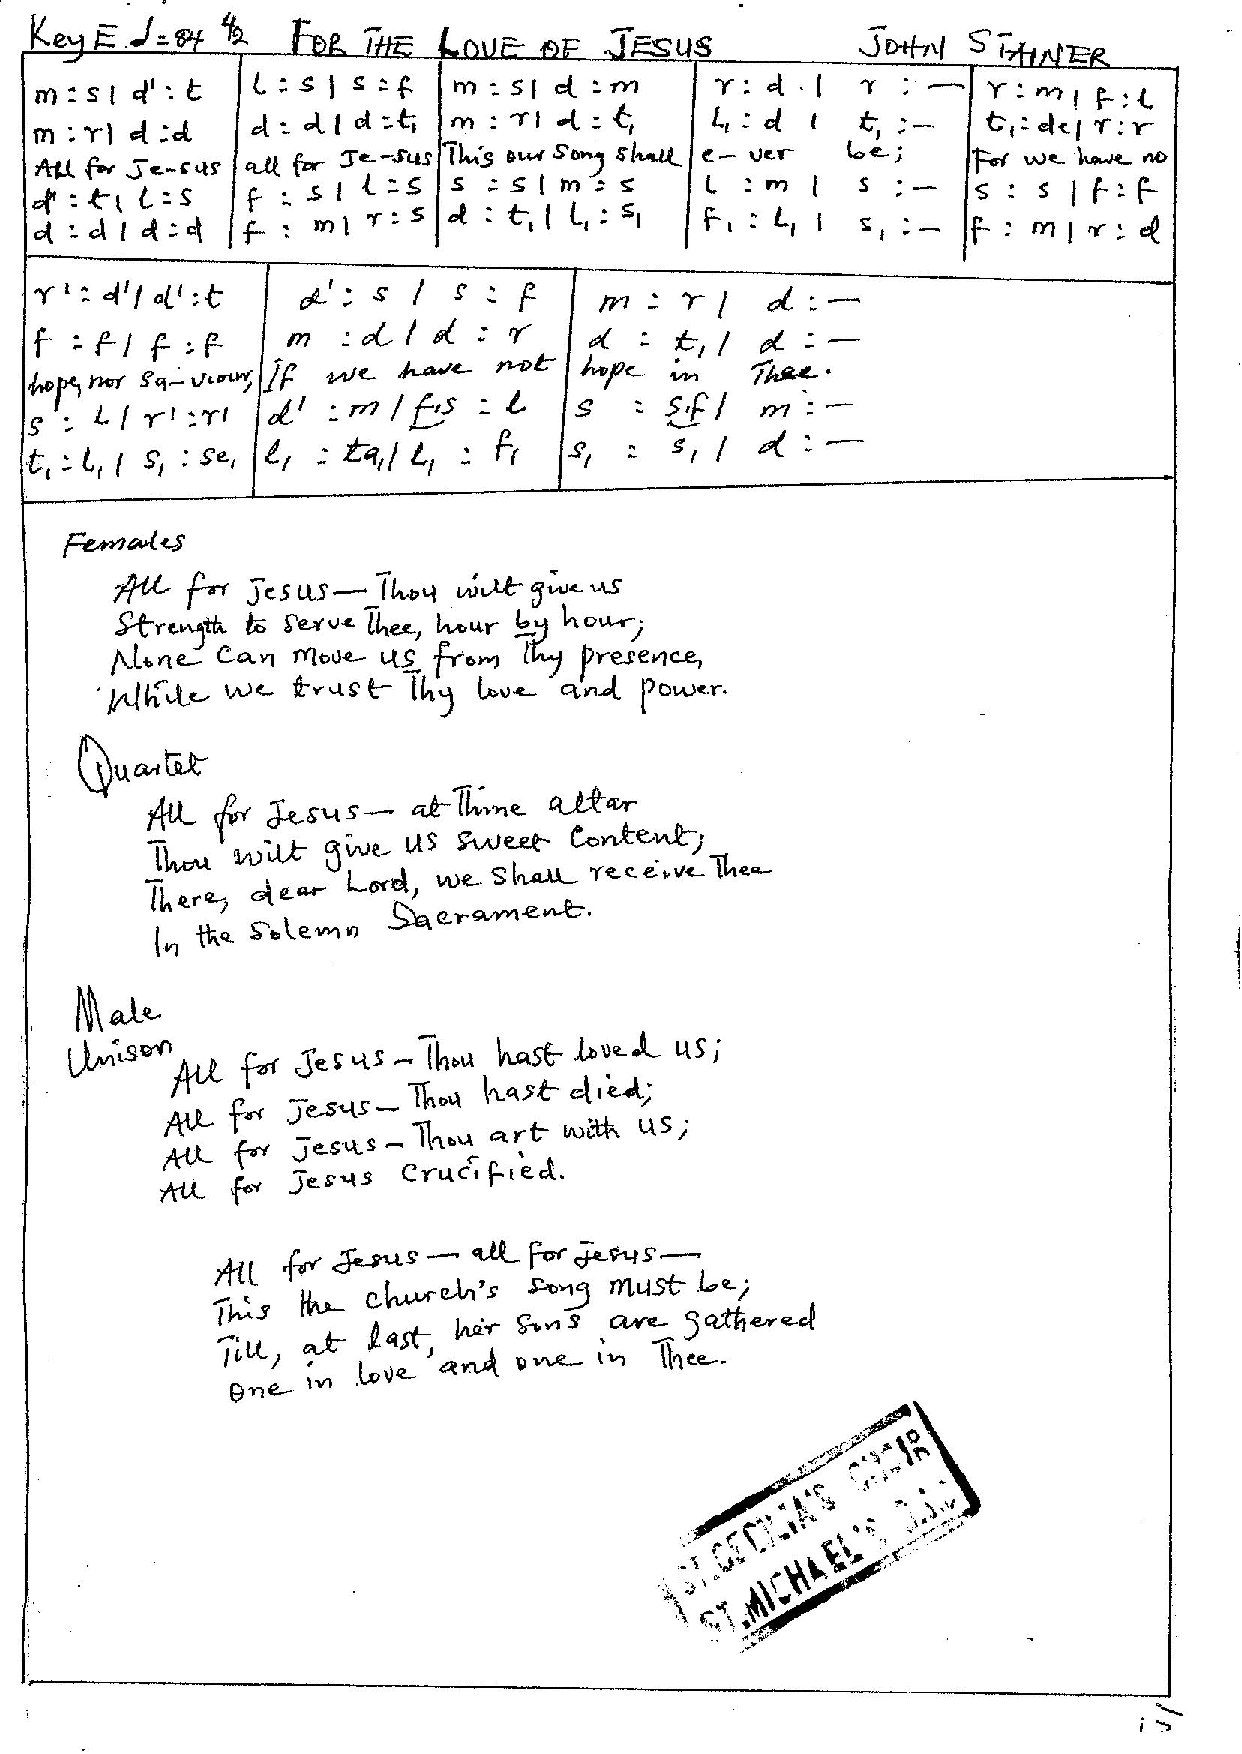 Key E ♩=84 4/2 FOR THE LOVE OF JESUS JOHN STAINER
m : s | d' : t | l : s | s : f | m : s | d : m | r : d . | r : — | r : m | f : l
m : r | d : d | d : d | d : t₁ | m : r | d : t₁ | l₁ : d | t₁ : — | t₁ : de | r : r
All for Je-sus all for Je-sus This our song shall e-ver be; For we have no
d' : t | l : s | f : s | l : s | s : s | m : s | l : m | s : — | s : s | f : f
d : d | d : d | f : m | r : s | d : t₁ | l₁ : s₁ | f₁ : l₁ | s₁ : — | f : m | r : d
r' : d' | d' : t | d' : s | s : f | m : r | d : —
f : f | f : f | m : d | d : r | d : t₁ | d : —
hope, nor Sa-viour, If we have not hope in Thee.
s : l | r' : r' | d' : m | f.s : l | s : s.f | m : —
t₁ : l₁ | s₁ : se₁ | l₁ : ta₁ | l₁ : f₁ | s₁ : s₁ | d : —
Females
All for Jesus — Thou wilt give us
Strength to serve Thee, hour by hour;
None can move us from Thy presence,
While we trust Thy love and power.
Quartet
All for Jesus — at Thine altar
Thou wilt give us sweet content;
There, dear Lord, we shall receive Thee
In the solemn Sacrament.
Male
Unison
All for Jesus — Thou hast loved us;
All for Jesus — Thou hast died;
All for Jesus — Thou art with us;
All for Jesus Crucified.
All for Jesus — all for Jesus —
This the church's song must be;
Till, at last, her sons are gathered
One in love and one in Thee.
ST. CECILIA'S CHOIR
ST. MICHAEL'S